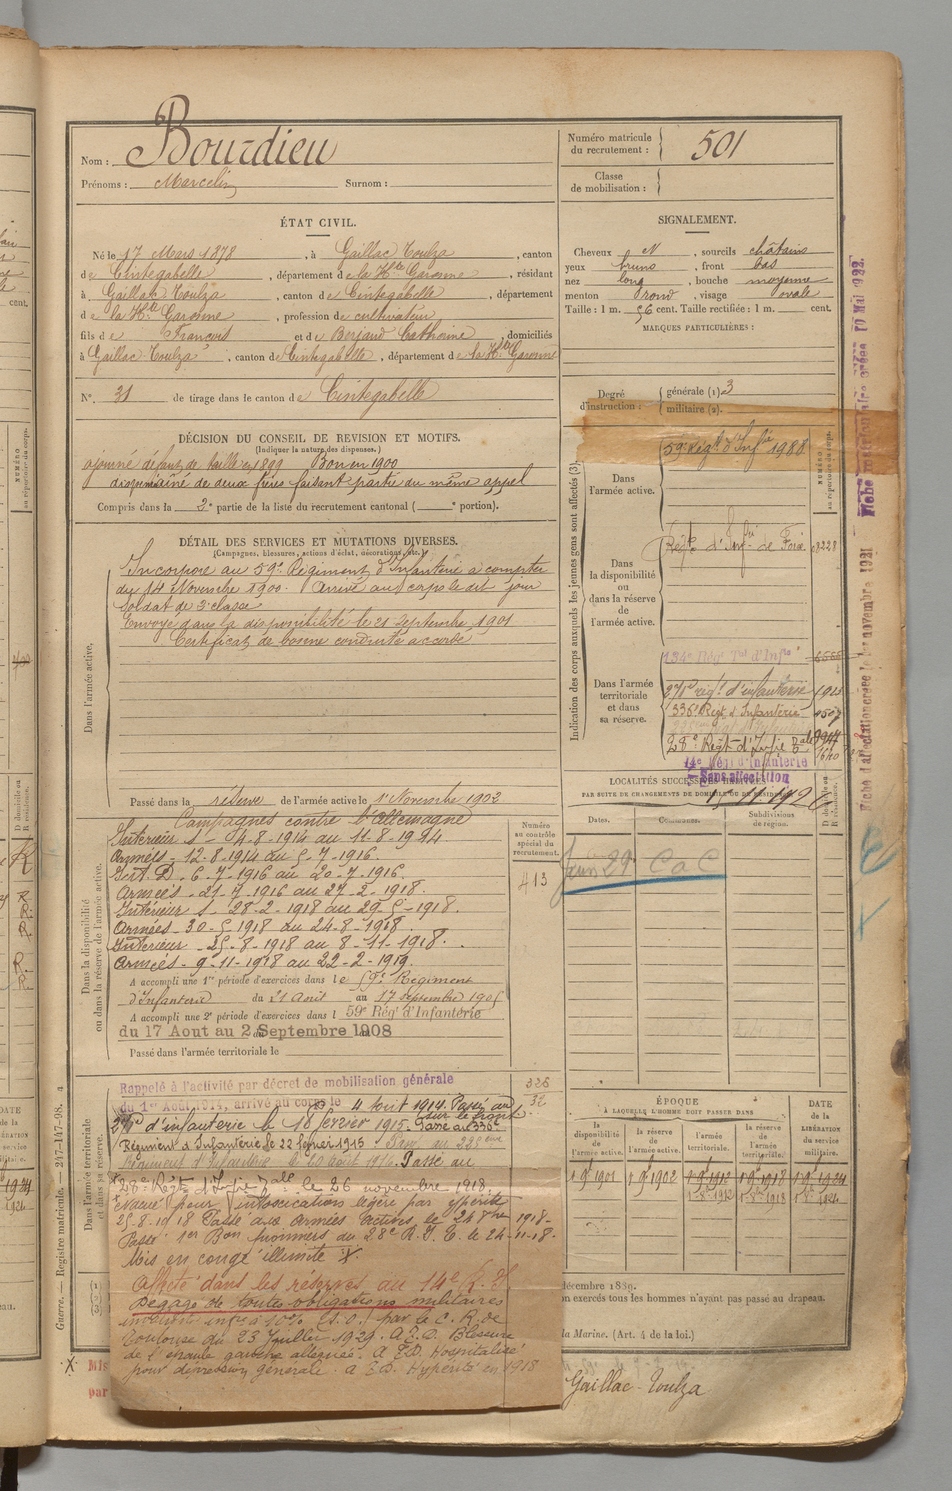 Nom : Bourdieu
Prénoms : Marcelin Surnom :
Numéro matricule du recrutement : 501
Classe de mobilisation :
ÉTAT CIVIL.
Né le 17 Mars 1878, à Gaillac Toulza, canton
de Cintegabelle, département de la Hte Garonne, résidant
à Gaillac Toulza, canton de Cintegabelle, département
de la Hte Garonne, profession de cultivateur,
fils de François et de Berjaud Catherine, domiciliés
à Gaillac Toulza, canton de Cintegabelle, département de la Hte Garonne
N° 31 de tirage dans le canton de Cintegabelle
SIGNALEMENT.
Cheveux N, sourcils châtains
yeux bruns, front bas
nez long, bouche moyenne
menton rond, visage ovale
Taille : 1 m. 56 cent. Taille rectifiée : 1 m. cent.
MARQUES PARTICULIÈRES :
Degré d'instruction : générale (1) 3
militaire (2).
DÉCISION DU CONSEIL DE REVISION ET MOTIFS.
(Indiquer la nature des dispenses.)
ajourné défaut de taille en 1899 Bon en 1900
de deux frères faisant partie du même appel
Compris dans la 2e partie de la liste du recrutement cantonal ( e portion).
DÉTAIL DES SERVICES ET MUTATIONS DIVERSES.
(Campagnes, blessures, actions d'éclat, décorations, etc.)
Dans l'armée active.
Incorporé au 59e Régiment d'Infanterie à compter
du 14 Novembre 1900. Arrivé au corps le dit jour
Soldat de 2e classe
Envoyé dans la disponibilité le 21 septembre 1901
Certificat de bonne conduite accordé
Passé dans la réserve de l'armée active le 1er Novembre 1902
Dans la disponibilité ou dans la réserve de l'armée active.
Campagnes contre l'Allemagne
Intérieur S 4-8-1914 au 11-8-1914
Armées - 12-8-1914 au 5-7-1916.
6-7-1916 au 20-7-1916.
Armées - 21-7-1916 au 27-2-1918.
Intérieur S - 28-2-1918 au 29-5-1918.
Armées - 30-5-1918 au 24-8-1918
Intérieur - 25-8-1918 au 8-11-1918.
Armées - 9-11-1918 au 22-2-1919.
A accompli une 1re période d'exercices dans le 59e Régiment
d'Infanterie du 21 Août au 17 septembre 1905
A accompli une 2e période d'exercices dans l 59e Rég' d'Infanterie
du 17 Aout au 2 Septembre 1908
Passé dans l'armée territoriale le
Numéro au contrôle spécial du recrutement.
413
Indication des corps auxquels les jeunes gens sont affectés (3).
NUMÉRO au répertoire du corps.
Dans l'armée active.
59e Régt d'Infie 1988
Dans la disponibilité ou dans la réserve de l'armée active.
Régt d'Infie de Foix 03228
Dans l'armée territoriale et dans sa réserve.
134e Rég' Tal d'Infie
271e régt d'infanterie
336e Régt d'Infanterie
28e Régt d'Infie
14e Rég' d'Infanterie
Sans affectition
LOCALITÉS SUCCESSIVES HABITÉES
PAR SUITE DE CHANGEMENTS DE DOMICILE OU DE RÉSIDENCE.
11.1926
Dates. Communes. Subdivisions de région.
Juin 29 C a C
Fiche d'affectation créée le 1er novembre 1921
Fiche matriculaire créée 10 Mai 1922
ÉPOQUE
À LAQUELLE L'HOMME DOIT PASSER DANS
la disponibilité de l'armée active. la réserve de l'armée active. l'armée territoriale. la réserve de l'armée territoriale. DATE de la LIBÉRATION du service militaire.
1 9bre 1901 1 9bre 1902 1 9bre 1912 1 9bre 1918 1 9bre 1924
Dans l'armée territoriale et dans sa réserve.
Rappelé à l'activité par décret de mobilisation générale
du 1er Août 1914, arrivé au corps le 4 Aout 1914. Passé au
d'infanterie le 18 février 1915. Passé au 336e
Régiment d'Infanterie le 22 février 1915
Passé au
28e Régt d'Infie le 26 novembre 1918.
Evacué pour intoxications légère par ypérite
25-8-1918 Passé aux Armées actives le 24 8bre 1918-
Passé 1er Bon pionniers du 28e R.I.T. le 24-11-18.
Mis en congé illimité X.
Affecté dans les réserves au 14e R.I.
Dégagé de toutes obligations militaires
invalidité infre à 10% (S.O.) par le C.R. de
Toulouse du 23 Juillet 1929. A.E.D. Blessure
de l'épaule gauche alléguée. A.E.D. Hospitalisé
pour dépression générale. A.E.D. Hypérité en 1918
décembre 1889.
on exercés tous les hommes n'ayant pas passé au drapeau.
la Marine. (Art. 4 de la loi.)
Gaillac-Toulza
Guerre. — Registre matricule. — 247-147-98.
X Mis
par